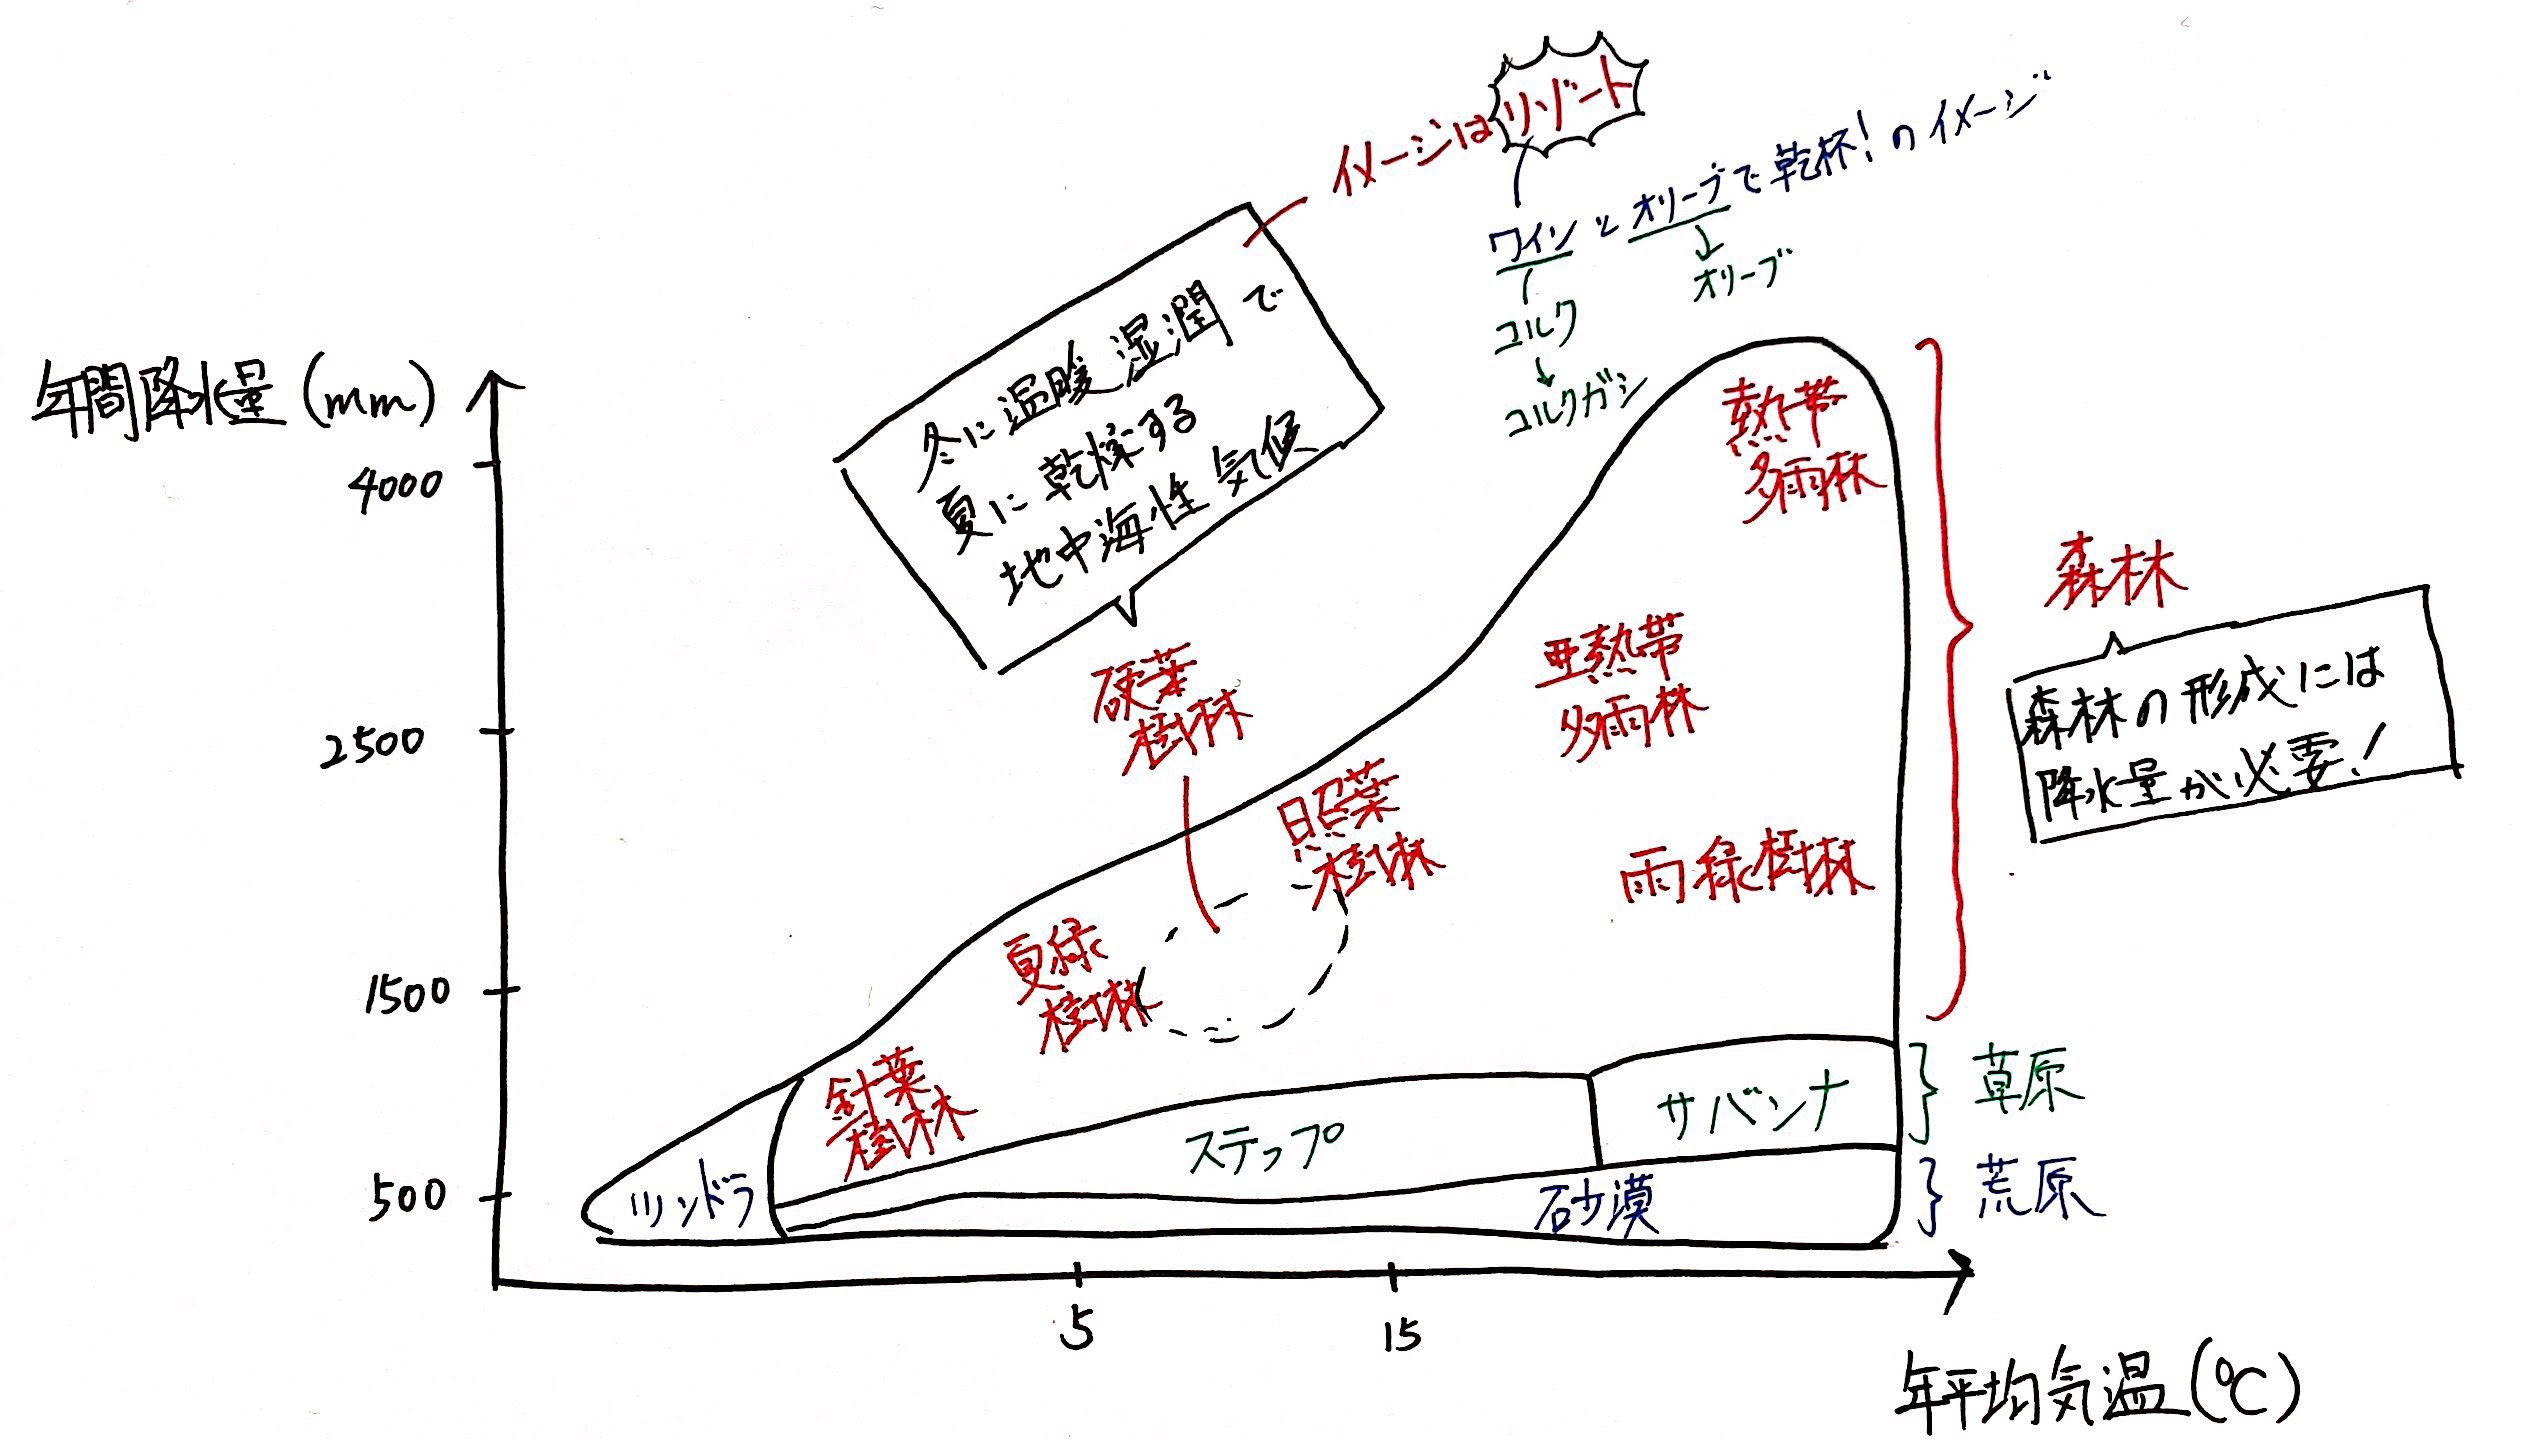 イメージはリゾート
ワインとオリーブで乾杯!のイメージ
オリーブ
コルク
コルクガシ
冬に温暖湿潤で
夏に乾燥する
地中海性気候
年間降水量(mm)
4000
2500
1500
500
熱帯
多雨林
亜熱帯
多雨林
硬葉
樹林
照葉
樹林
雨緑樹林
夏緑
樹林
針葉
樹林
ツンドラ
ステップ
サバンナ
砂漠
森林
森林の形成には
降水量が必要!
草原
荒原
5
15
年平均気温(℃)